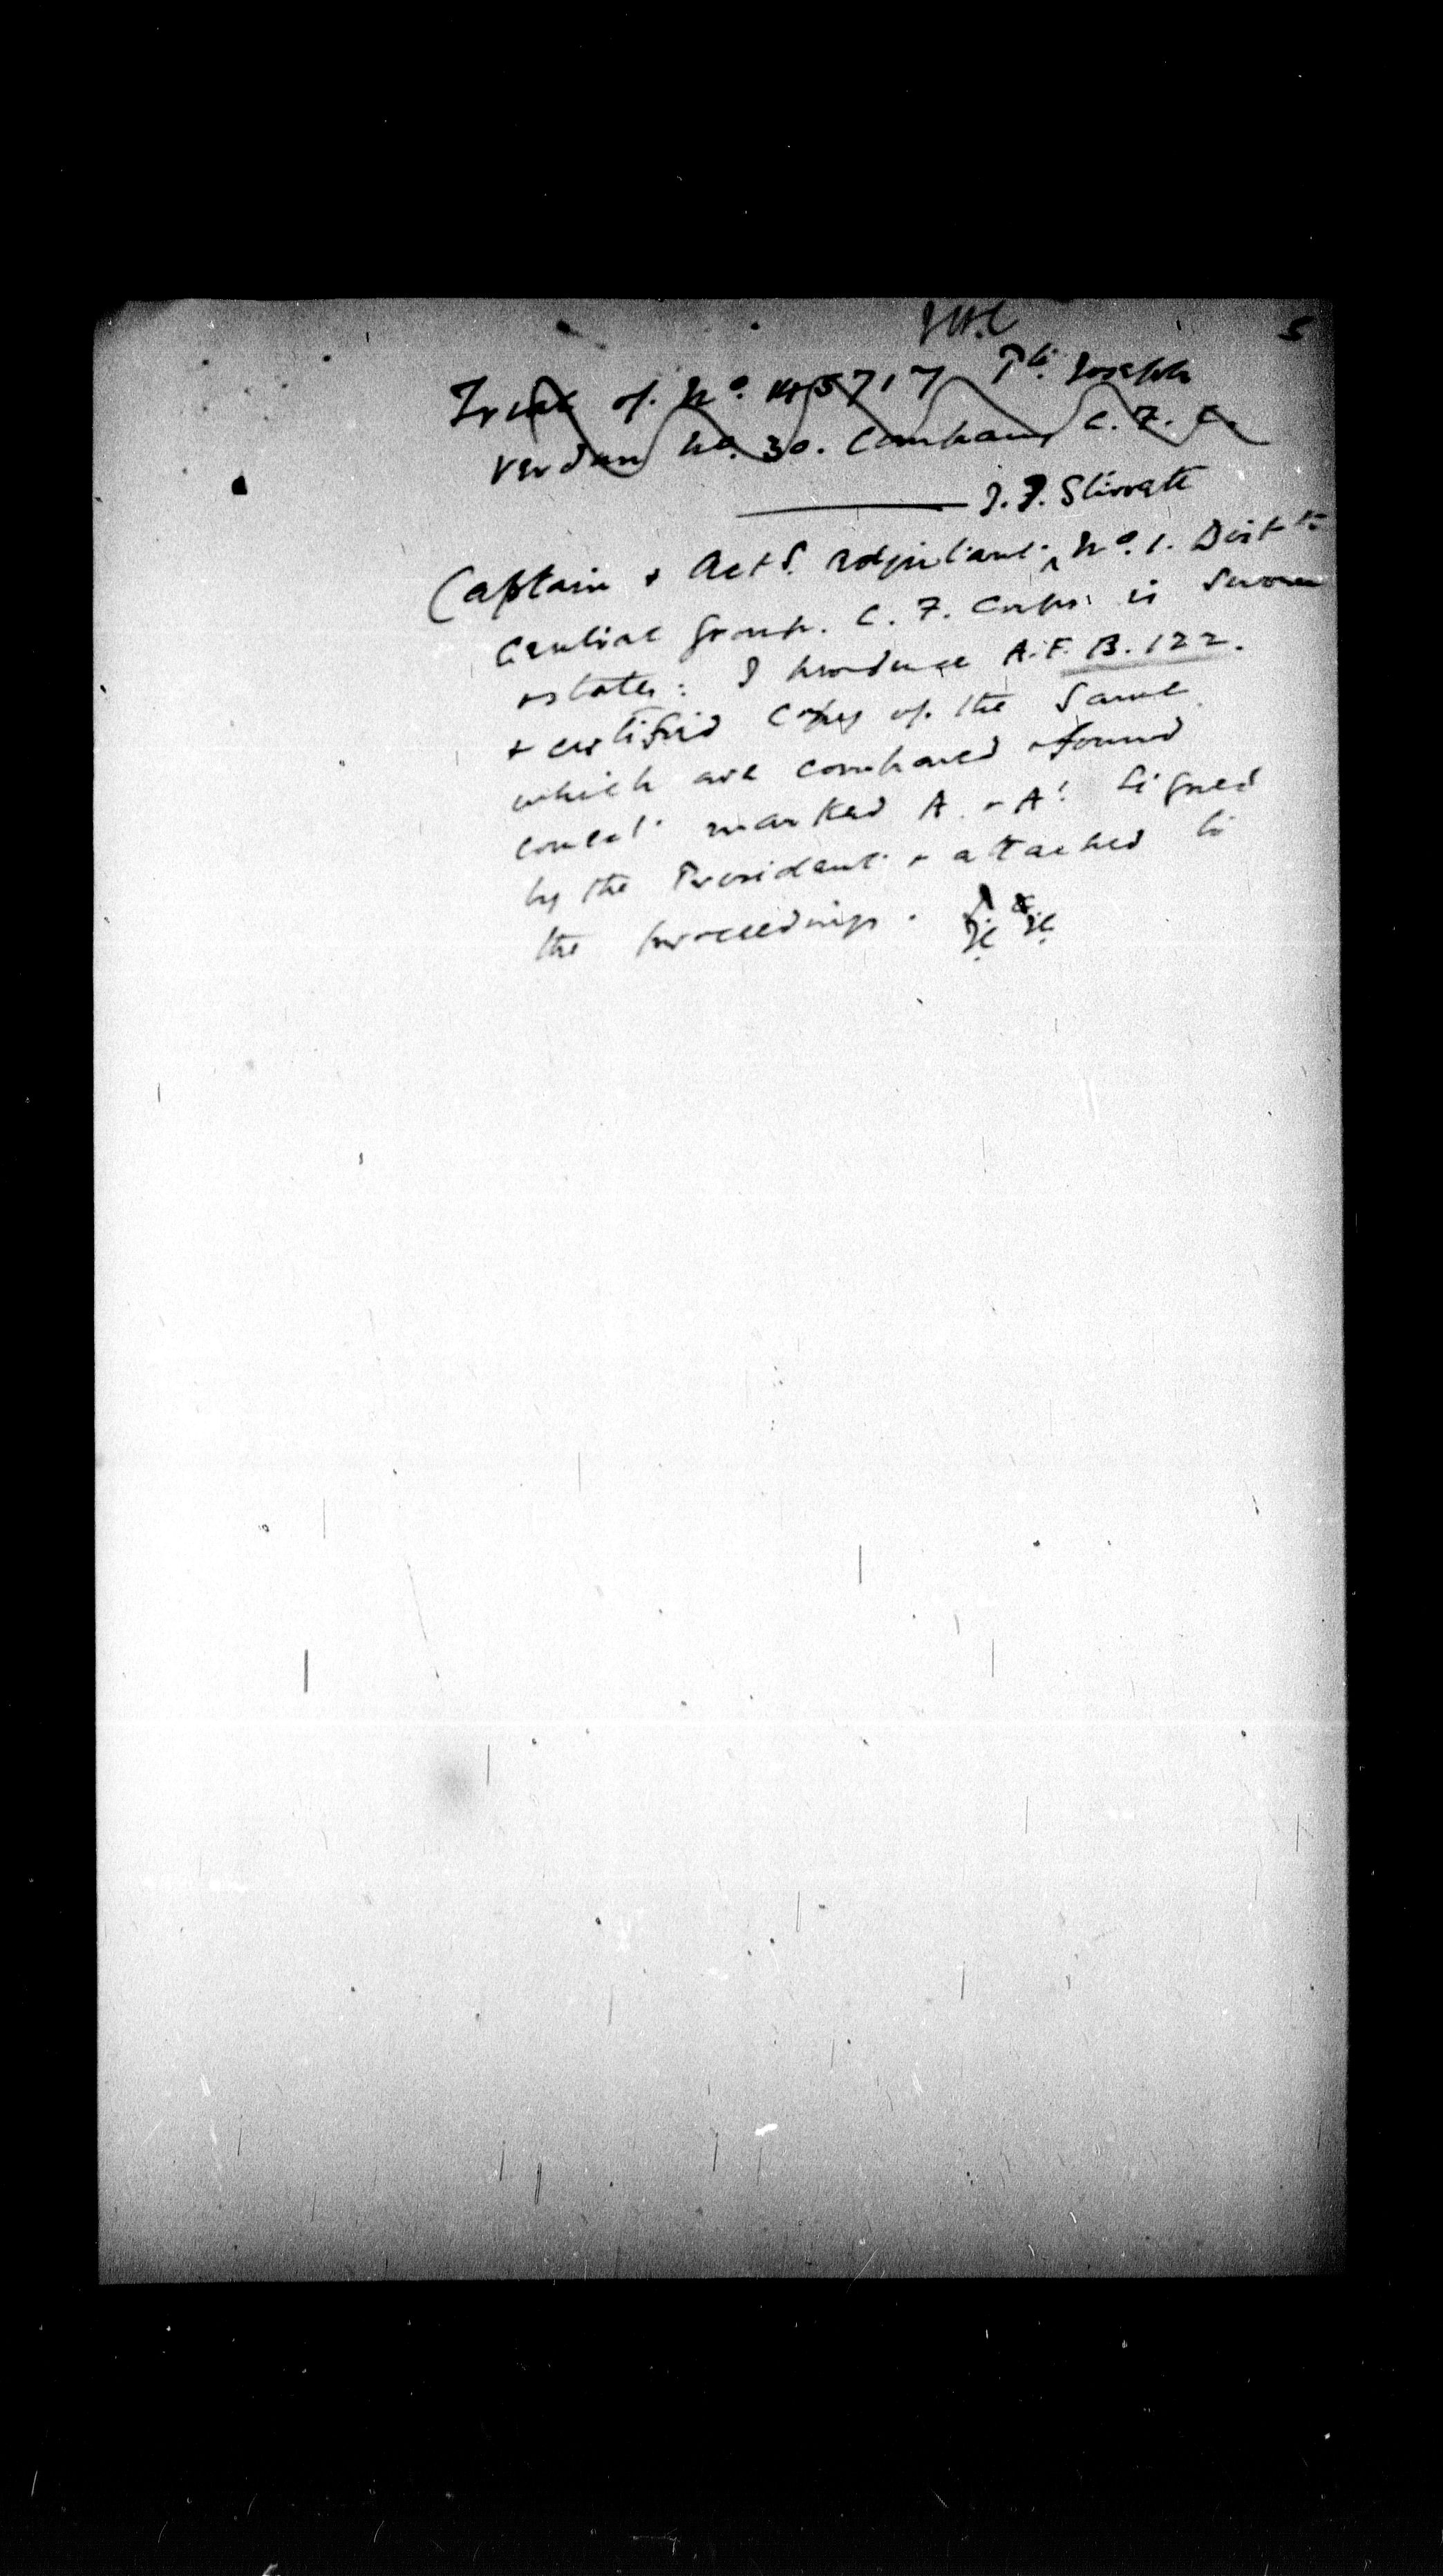 5
Trial of No. 145717 Pte Joseph
Verdun No. 30. Company C. F. C.
J. F. Stirrett
Captain & Actg. Adjutant. No. 1. Distt
Central Group. C. F. Corps. is sworn
& states: I produce A.F. B. 122.
& certified copy of the same
which are compared & found
correct. marked A. & A1 signed
by the President & attached to
the proceedings.